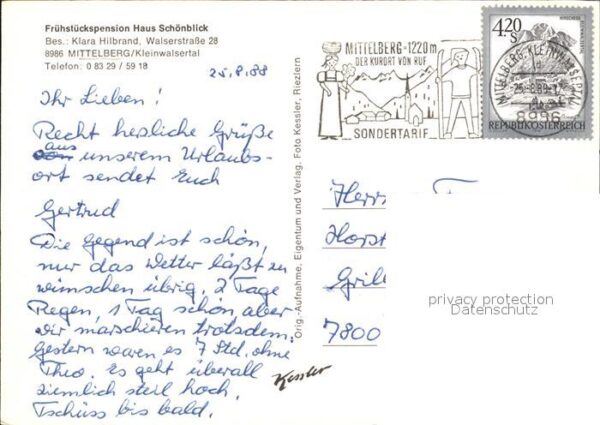 Frühstückspension Haus Schönblick
Bes.: Klara Hilbrand, Walserstraße 28
8986 MITTELBERG/Kleinwalsertal
Telefon: 0 83 29 / 59 18
25.8.88
Ihr Lieben!
Recht herzliche Grüße
aus unserem Urlaubs-
ort sendet Euch
Gertrud
Die Gegend ist schön,
nur das Wetter läßt zu
wünschen übrig. 2 Tage
Regen, 1 Tag schön, aber
wir marschieren trotzdem.
Gestern waren es 7 Std. ohne
Theo. Es geht überall
ziemlich steil hoch.
Tschüss bis bald.
Orig.-Aufnahme, Eigentum und Verlag. Foto Kessler, Riezlern
Kessler
MITTELBERG-1220m
DER KURORT VON RUF
SONDERTARIF
4.20
S
MITTELBERG, KLEINWALSERTAL
8996
REPUBLIK ÖSTERREICH
Herrn
Horst
7800
privacy protection
Datenschutz